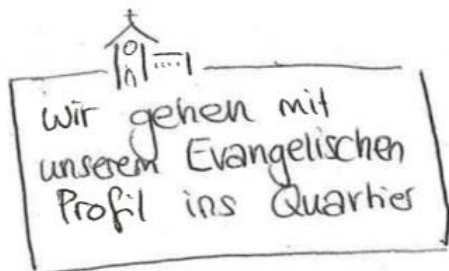 wir gehen mit
unserem Evangelischen
Profil ins Quartier